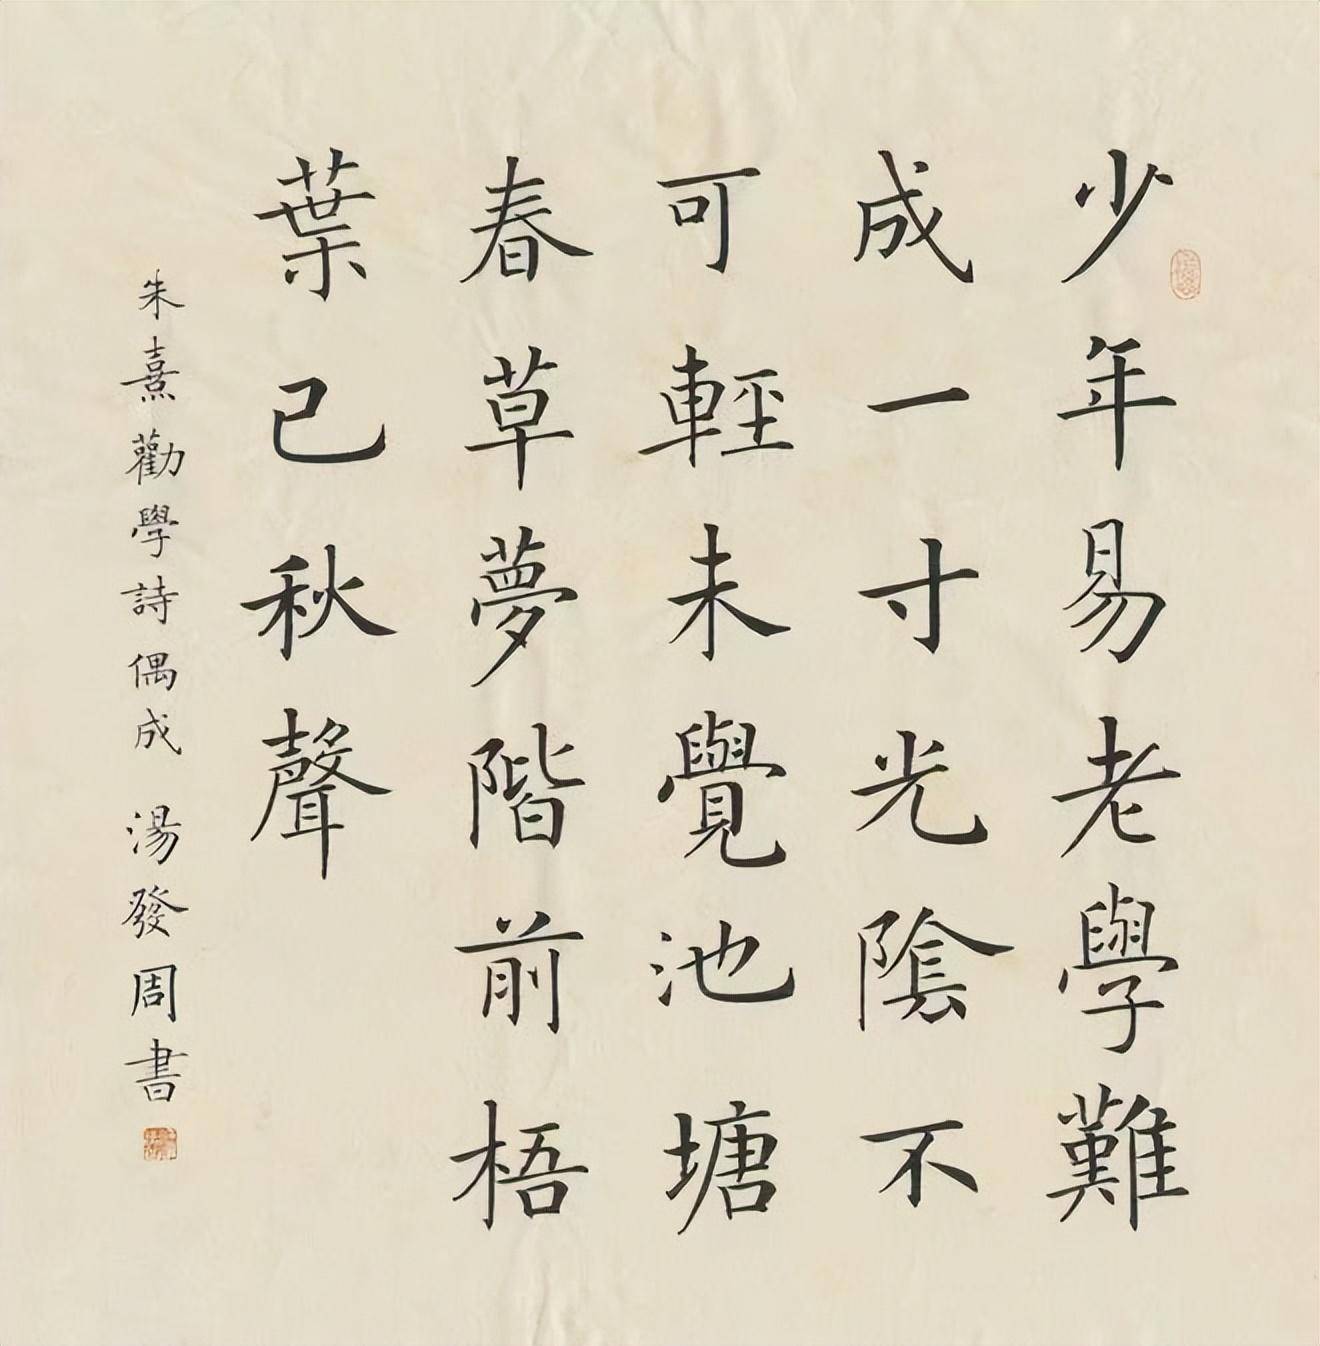 少年易老學難
成一寸光陰不
可輕未覺池塘
春草夢階前梧
葉已秋聲
朱熹勸學詩偶成 湯發周書